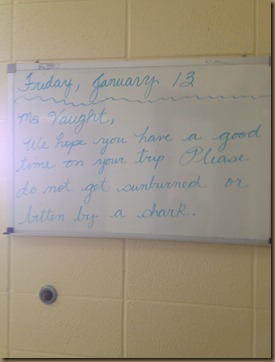 Friday, January 13
Ms Vaught,
We hope you have a good
time on your trip Please
do not get sunburned or
bitten by a shark.